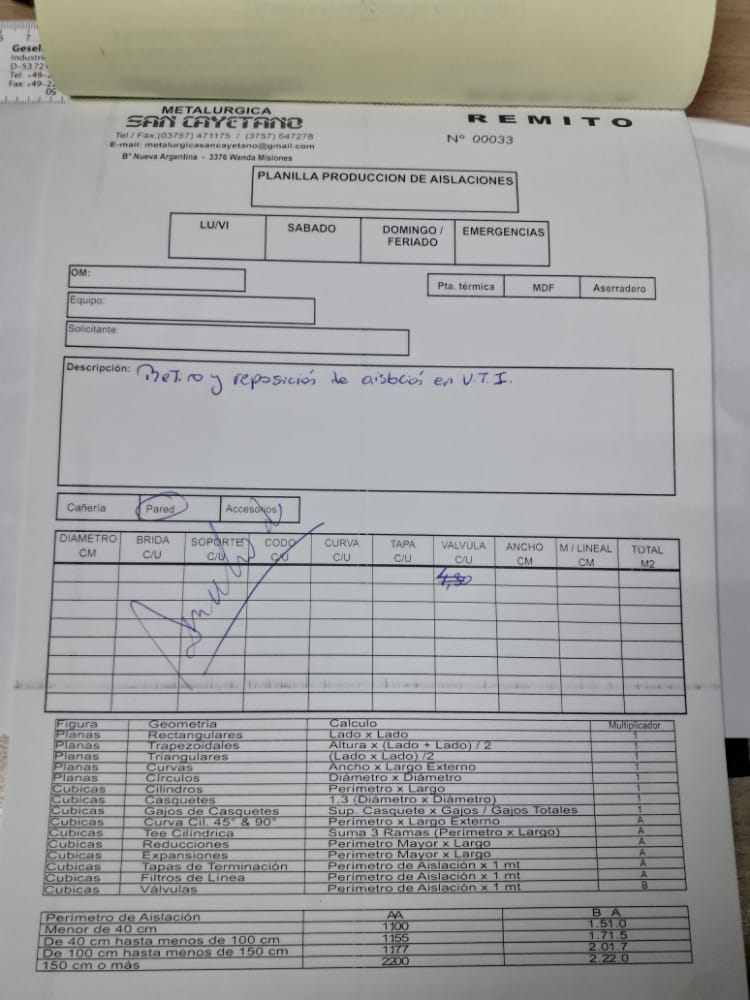 Gesel
Industri
D-5372
Tel: +49-2
Fax: +49-2
METALURGICA
SAN CAYETANO
Tel./ Fax:(03757) 471175 / (3757) 547278
E-mail: metalurgicasancayetano@gmail.com
B° Nueva Argentina - 3376 Wanda Misiones
REMITO
N° 00033
PLANILLA PRODUCCION DE AISLACIONES
LU/VI SABADO DOMINGO / FERIADO EMERGENCIAS
OM:
Pta. térmica MDF Aserradero
Equipo:
Solicitante:
Descripción: Retiro y reposición de aislación en V.T.I.
Cañeria Pared Accesorios
DIAMETRO CM BRIDA C/U SOPORTE C/U CODO C/U CURVA C/U TAPA C/U VALVULA C/U ANCHO CM M / LINEAL CM TOTAL M2
4,30
Anulado
Figura Geometria Calculo Multiplicador
Planas Rectangulares Lado x Lado 1
Planas Trapezoidales Altura x (Lado + Lado) / 2 1
Planas Triangulares (Lado x Lado) /2 1
Planas Curvas Ancho x Largo Externo 1
Planas Círculos Diámetro x Diámetro 1
Cubicas Cilindros Perimetro x Largo 1
Cubicas Casquetes 1,3 (Diámetro x Diámetro) 1
Cubicas Gajos de Casquetes Sup. Casquete x Gajos / Gajos Totales 1
Cubicas Curva Cil. 45° & 90° Perimetro x Largo Externo A
Cubicas Tee Cilindrica Suma 3 Ramas (Perimetro x Largo) A
Cubicas Reducciones Perimetro Mayor x Largo A
Cubicas Expansiones Perimetro Mayor x Largo A
Cubicas Tapas de Terminación Perimetro de Aislación x 1 mt A
Cubicas Filtros de Línea Perimetro de Aislación x 1 mt A
Cubicas Válvulas Perimetro de Aislación x 1 mt B
Perimetro de Aislación AA B A
Menor de 40 cm 1100 1.51.0
De 40 cm hasta menos de 100 cm 1155 1.71.5
De 100 cm hasta menos de 150 cm 1177 2.01.7
150 cm o más 2200 2.22.0